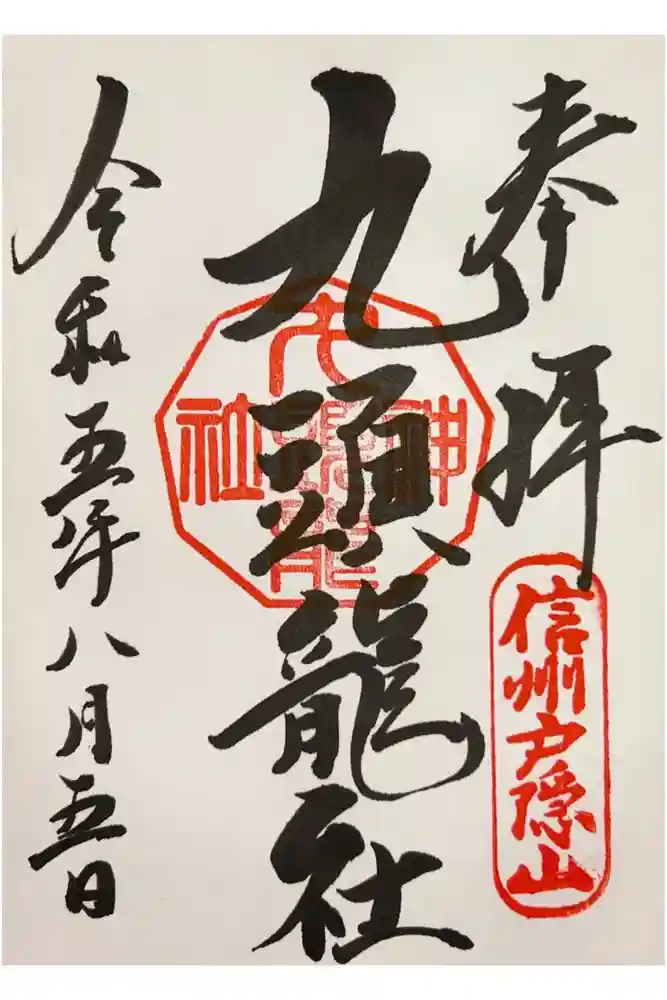 奉拝
信州戸隠山
九頭龍社
九頭龍
神社
令和五年八月五日